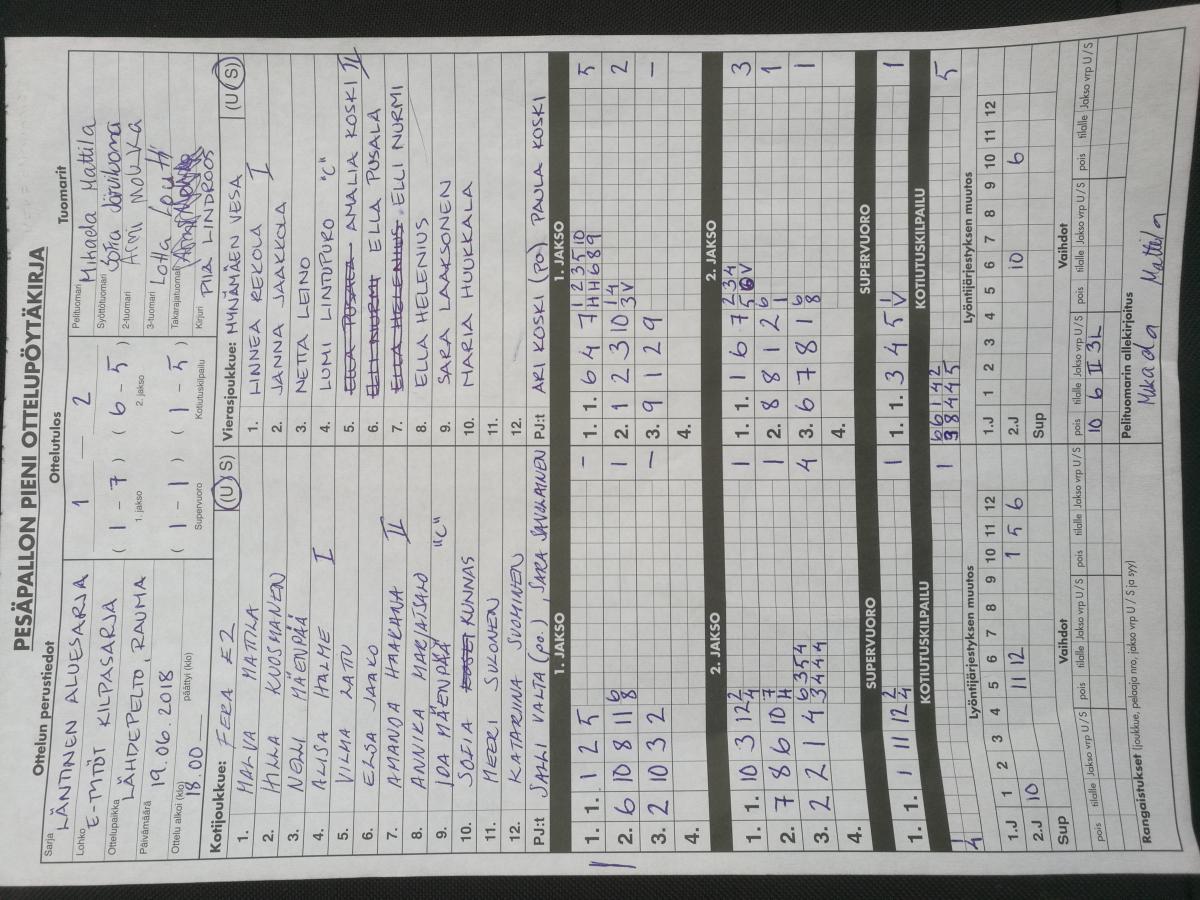 PESÄPALLON PIENI OTTELUPÖYTÄKIRJA
Ottelun perustiedot
Ottelutulos
Tuomarit
Sarja
LÄNTINEN ALUESARJA
Lohko
E-TYTÖT KILPASARJA
Ottelupaikka
LÄHDEPELTO, RAUMA
Päivämäärä
19.06.2018
Ottelu alkoi (klo) päättyi (klo)
18.00
1 — 2
( 1 - 7 ) ( 6 - 5 )
1. jakso 2. jakso
( 1 - 1 ) ( 1 - 5 )
Supervuoro Kotiutuskilpailu
Pelituomari Mikaela Mattila
Syöttötuomari Sofia Järviluoma
2-tuomari
3-tuomari Lotta
Takarajatuomari
Kirjuri PIA LINDROOS
Kotijoukkue: FERA E2 (U S)
1. MALVA MATTILA
2. HILLA KUOSMANEN
3. NELLI MÄENPÄÄ
4. ALISA HALME I
5. VILMA LATU
6. ELSA JAAKO
7. AMANDA HAAKANA II
8. ANNIKA MARJAISALO
9. IDA MÄENPÄÄ "C"
10. SOFIA KUNNAS
11. MEERI SUKONEN
12. KATARIINA SUOMINEN
PJ:t SALLI VALTA (po.), SARA SAVOLAINEN
Vierasjoukkue: MYNÄMÄEN VESA (U S)
1. LINNEA REKOLA I
2. JANNA JAAKKOLA
3. NETTA LEINO
4. LUMI LINTUPURO "C"
5. ELLA PUSALA AMALIA KOSKI II
6. ELLI NURMI ELLA PUSALA
7. ELLA HELENIUS ELLI NURMI
8. ELLA HELENIUS
9. SARA LAAKSONEN
10. MARIA HUUKKALA
11.
12.
PJ:t ARI KOSKI (PO) PAULA KOSKI
1. JAKSO
1. 1. 1 2 5 –
2. 6 10 8 11 6 8 1
3. 2 10 3 2 –
4.
2. JAKSO
1. 1. 10 3 12 2 4 1
2. 7 8 6 10 7 H 1
3. 2 1 4 6 3 5 4 3 4 4 4 4
4.
SUPERVUORO
1. 1. 1 11 12 2 4 1
KOTIUTUSKILPAILU
1 4 1
1. JAKSO
1. 1. 6 4 7 1 2 3 5 10 H H 6 8 9 5
2. 1 2 3 10 1 4 3 V 2
3. 9 1 2 9 –
4.
2. JAKSO
1. 1. 1 6 7 2 3 4 5 6 V 3
2. 8 8 1 2 6 1 1
3. 6 7 8 1 6 8 1
4.
SUPERVUORO
1. 1. 3 4 5 1 V 1
KOTIUTUSKILPAILU
6 6 1 4 2
9 8 4 4 5 5
Lyöntijärjestyksen muutos
1 2 3 4 5 6 7 8 9 10 11 12
1.J 11 12 1 5 6
2.J 10
Sup
Vaihdot
pois tilalle Jakso vrp U / S pois tilalle Jakso vrp U / S pois tilalle Jakso vrp U / S
Lyöntijärjestyksen muutos
1 2 3 4 5 6 7 8 9 10 11 12
1.J
2.J 10 6
Sup
Vaihdot
pois tilalle Jakso vrp U / S pois tilalle Jakso vrp U / S pois tilalle Jakso vrp U / S
10 6 II 3L
Rangaistukset (joukkue, pelaaja nro, jakso vrp U / S ja syy)
Pelituomarin allekirjoitus
Mikaela Mattila